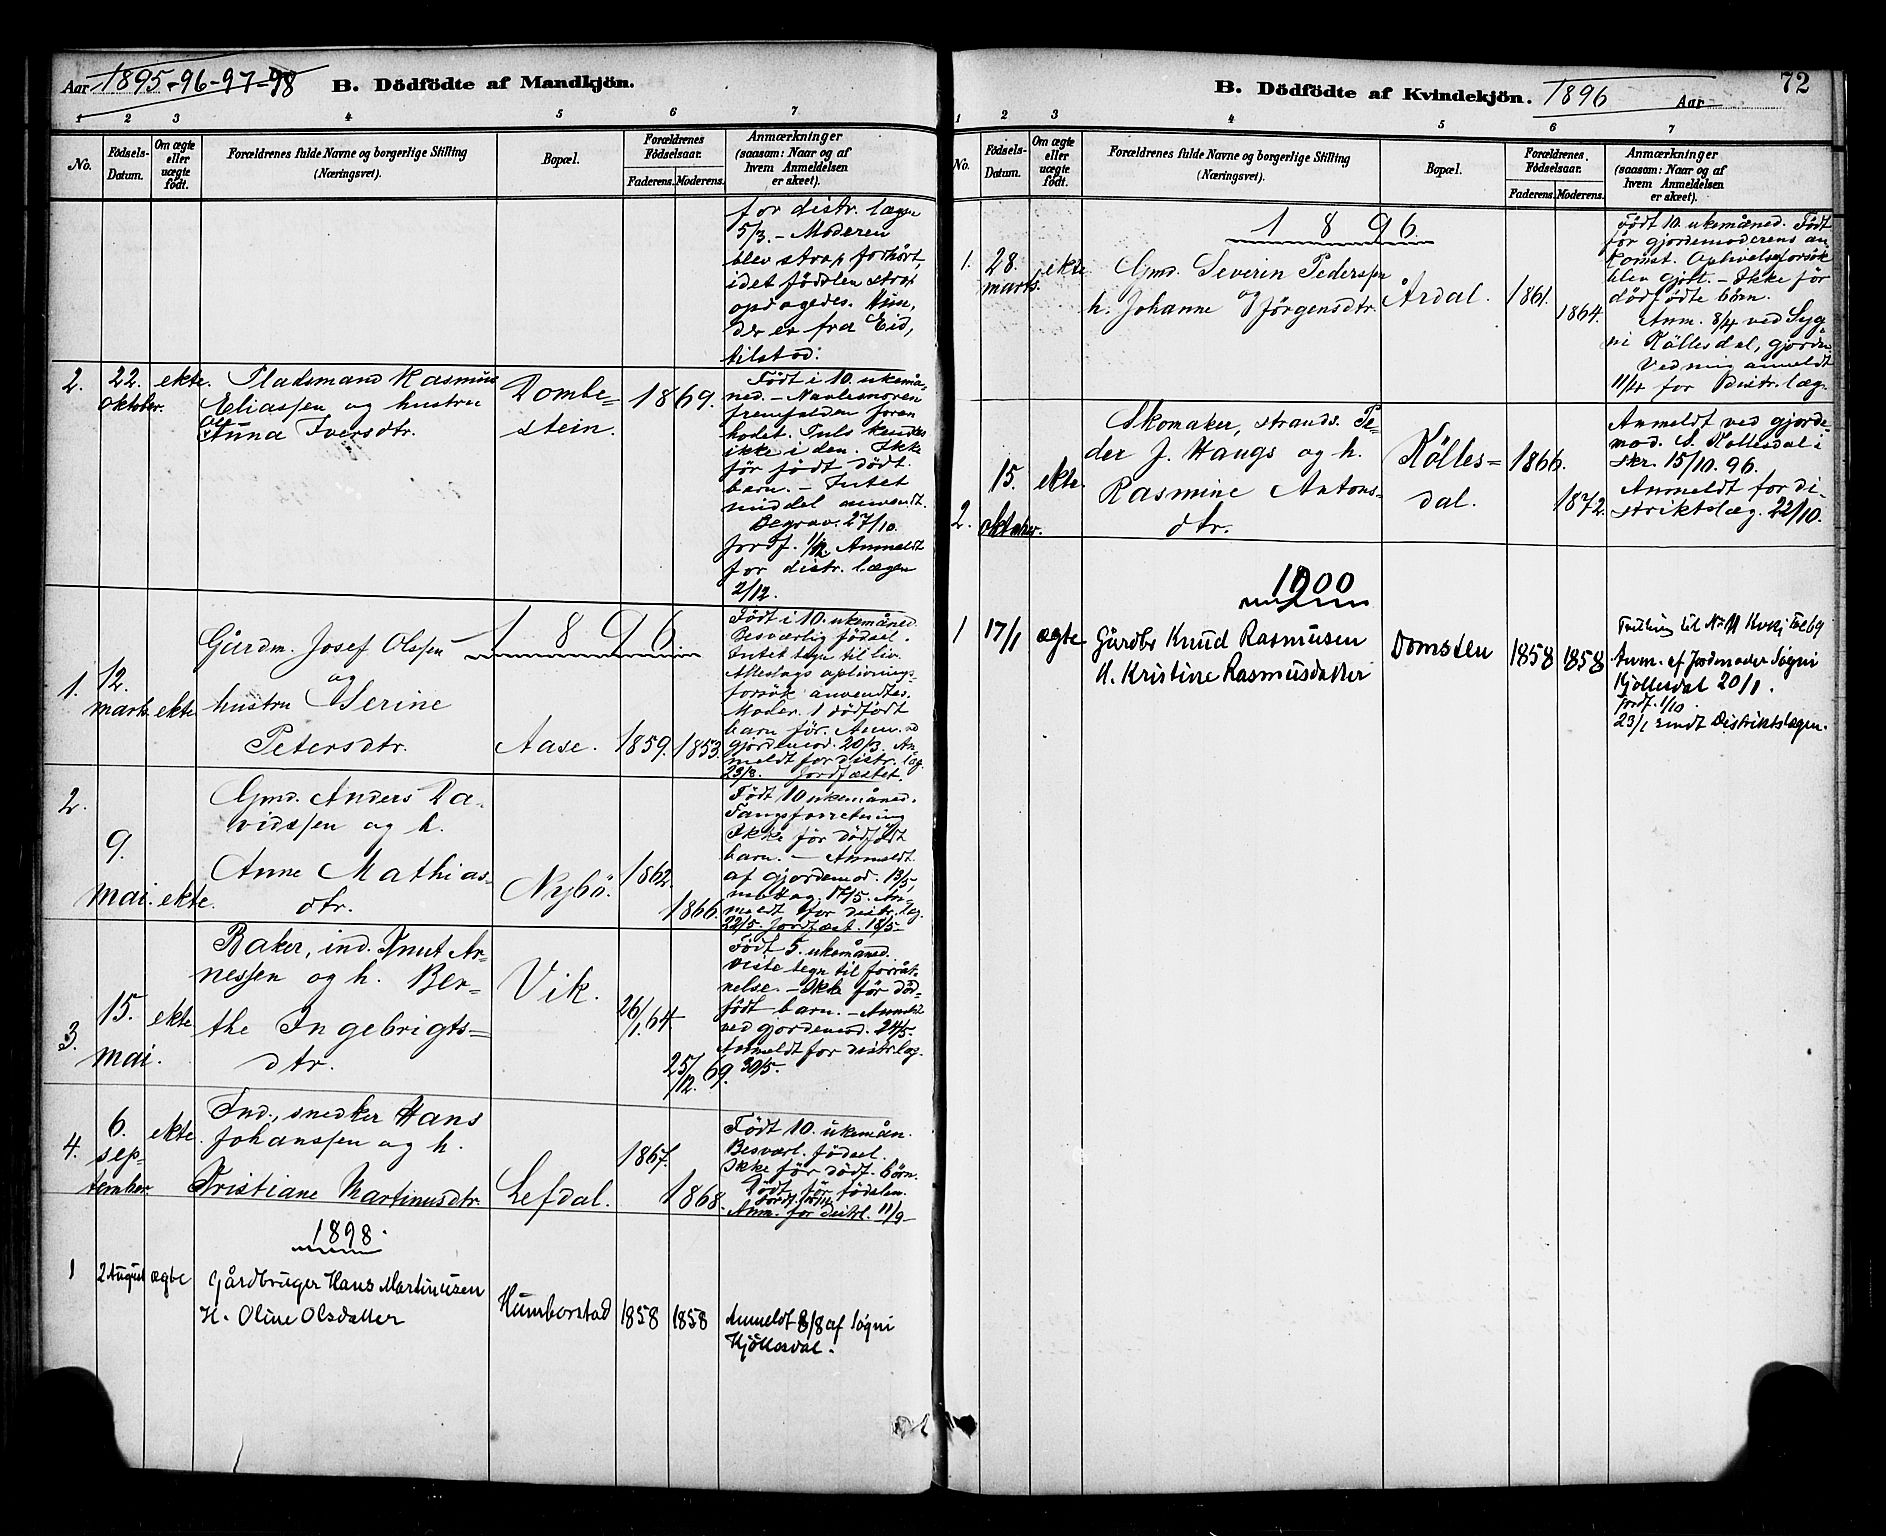 Aar 1895-96-97-98
B. Dödfödte af Mandkjön.
1 2 3 4 5 6 7
No.
Födsels-Datum.
Om ægte eller uægte födt.
Forældrenes fulde Navne og borgerlige Stilling (Næringsvei).
Bopæl.
Forældrenes Födselsaar.
Faderens. Moderens.
Anmærkninger (saasom: Naar og af hvem Anmeldelsen er skeet).
for distr. lægen
5/3. – Moderen
blev strax forhört
idet födslen strax
opdagedes. Hun,
der er fra Eid,
tilstod.
2. 22. oktober. ekte.
Pladsmand Rasmus
Eliassen og hustru
Anna Iversdtr.
Dombe-
stein.
1869.
Födt i 10. ukemå-
ned. – Navlesnoren
fremfalden foran
hodet. Puls kjendes
ikke i den. Ikke
för födt dödt
barn. – Intet
middel anvendt.
Begrav. 27/10.
Jordf. 1/12 Anmeldt
for distr. lægen
2/12.
1896
1. 12. marts ekte
Gårdm. Josef Olssen
og
hustru Serine
Petersdtr.
Aase. 1859. 1853.
Födt i 10. ukemåned
Besværlig födsel.
Intet tegn til liv.
Alleslags oplivnings-
forsök anvendtes.
Moder 1 dödfödt
barn för. Anm. ved
gjordemod. 20/3. An-
meldt for distr. læg.
23/3. Jordfæstet.
2. 9. mai. ekte.
Gmd. Anders Da-
vidssen og h.
Anne Mathias-
dtr.
Nybö. 1862. 1866.
Födt 10 ukemåned.
Tangforretning
Ikke för dödfödt
barn. – Anmeldt
af gjordemod. 13/5,
17/5. An-
meldt for distr. læg.
22/5. Jordfæst. 18/5
3. 15. mai. ekte
Baker, ind. Knut Ar-
nessen og h. Ber-
the Ingebrigts-
dtr.
Vik.
26/1. 64
25/12. 69.
Födt 5. ukemåned.
viste tegn til forråt-
nelse. – Ikke för död-
födt barn. – Anmeldt
ved gjordemod. 24/5.
Anmeldt for distr. læg.
30/5.
4. 6. sep-
tember ekte.
Ind., snedker Hans
Johanssen og h.
Kristiane Martinusdtr.
Lefdal. 1867. 1868.
Födt 10. ukemån.
Besværl. födsel.
Ikke för dödf. börn.
Död för födslen.
Anm. for distrl. 11/9
1898.
1 2 August ægte
Gårdbruger Hans Martinusen
H. Oline Olsdatter
Humborstad 1858 1858
Anmeldt 8/8 af Sögni
Kjöllesdal.
B. Dödfödte af Kvindekjön. 1896 Aar
72
1 2 3 4 5 6 7
No.
Födsels-Datum.
Om ægte eller uægte födt.
Forældrenes fulde Navne og borgerlige Stilling (Næringsvei).
Bopæl.
Forældrenes Födselsaar.
Faderens. Moderens.
Anmærkninger (saasom: Naar og af hvem Anmeldelsen er skeet).
1896
1. 28. marts. ekte
Gmd. Severin Pederssen
og
h. Johanne Jörgensdtr.
Årdal. 1861. 1864.
Födt 10. ukemåned. Födt
för gjordemoderens an-
komst. Oplivelsesforsök
blev gjort. – Ikke för
dödfödte börn.
Anm. 8/4 ved Syg-
ni Köllesdal, gjordem.
Vedning anmeldt
11/4 for Distr. læg.
2. 15. oktober. ekte.
Skomaker, strands. Pe-
der J. Haugs og h.
Rasmine Antons-
dtr.
Kölles-
dal.
1866. 1872.
Anmeldt ved gjorde-
mod. S. Köllesdal i
skr. 15/10. 96.
Anmeldt for di-
striktslæg. 22/10.
1900
1 17/1 ægte
Gårdbr Knud Rasmusen
H. Kristine Rasmusdatter
Domsten 1858 1858
Tvilling til No 11
Anm. af Jordmoder Sögni
Kjöllesdal 20/1.
Jordf. 1/10
23/1 sendt Distriktslægen.